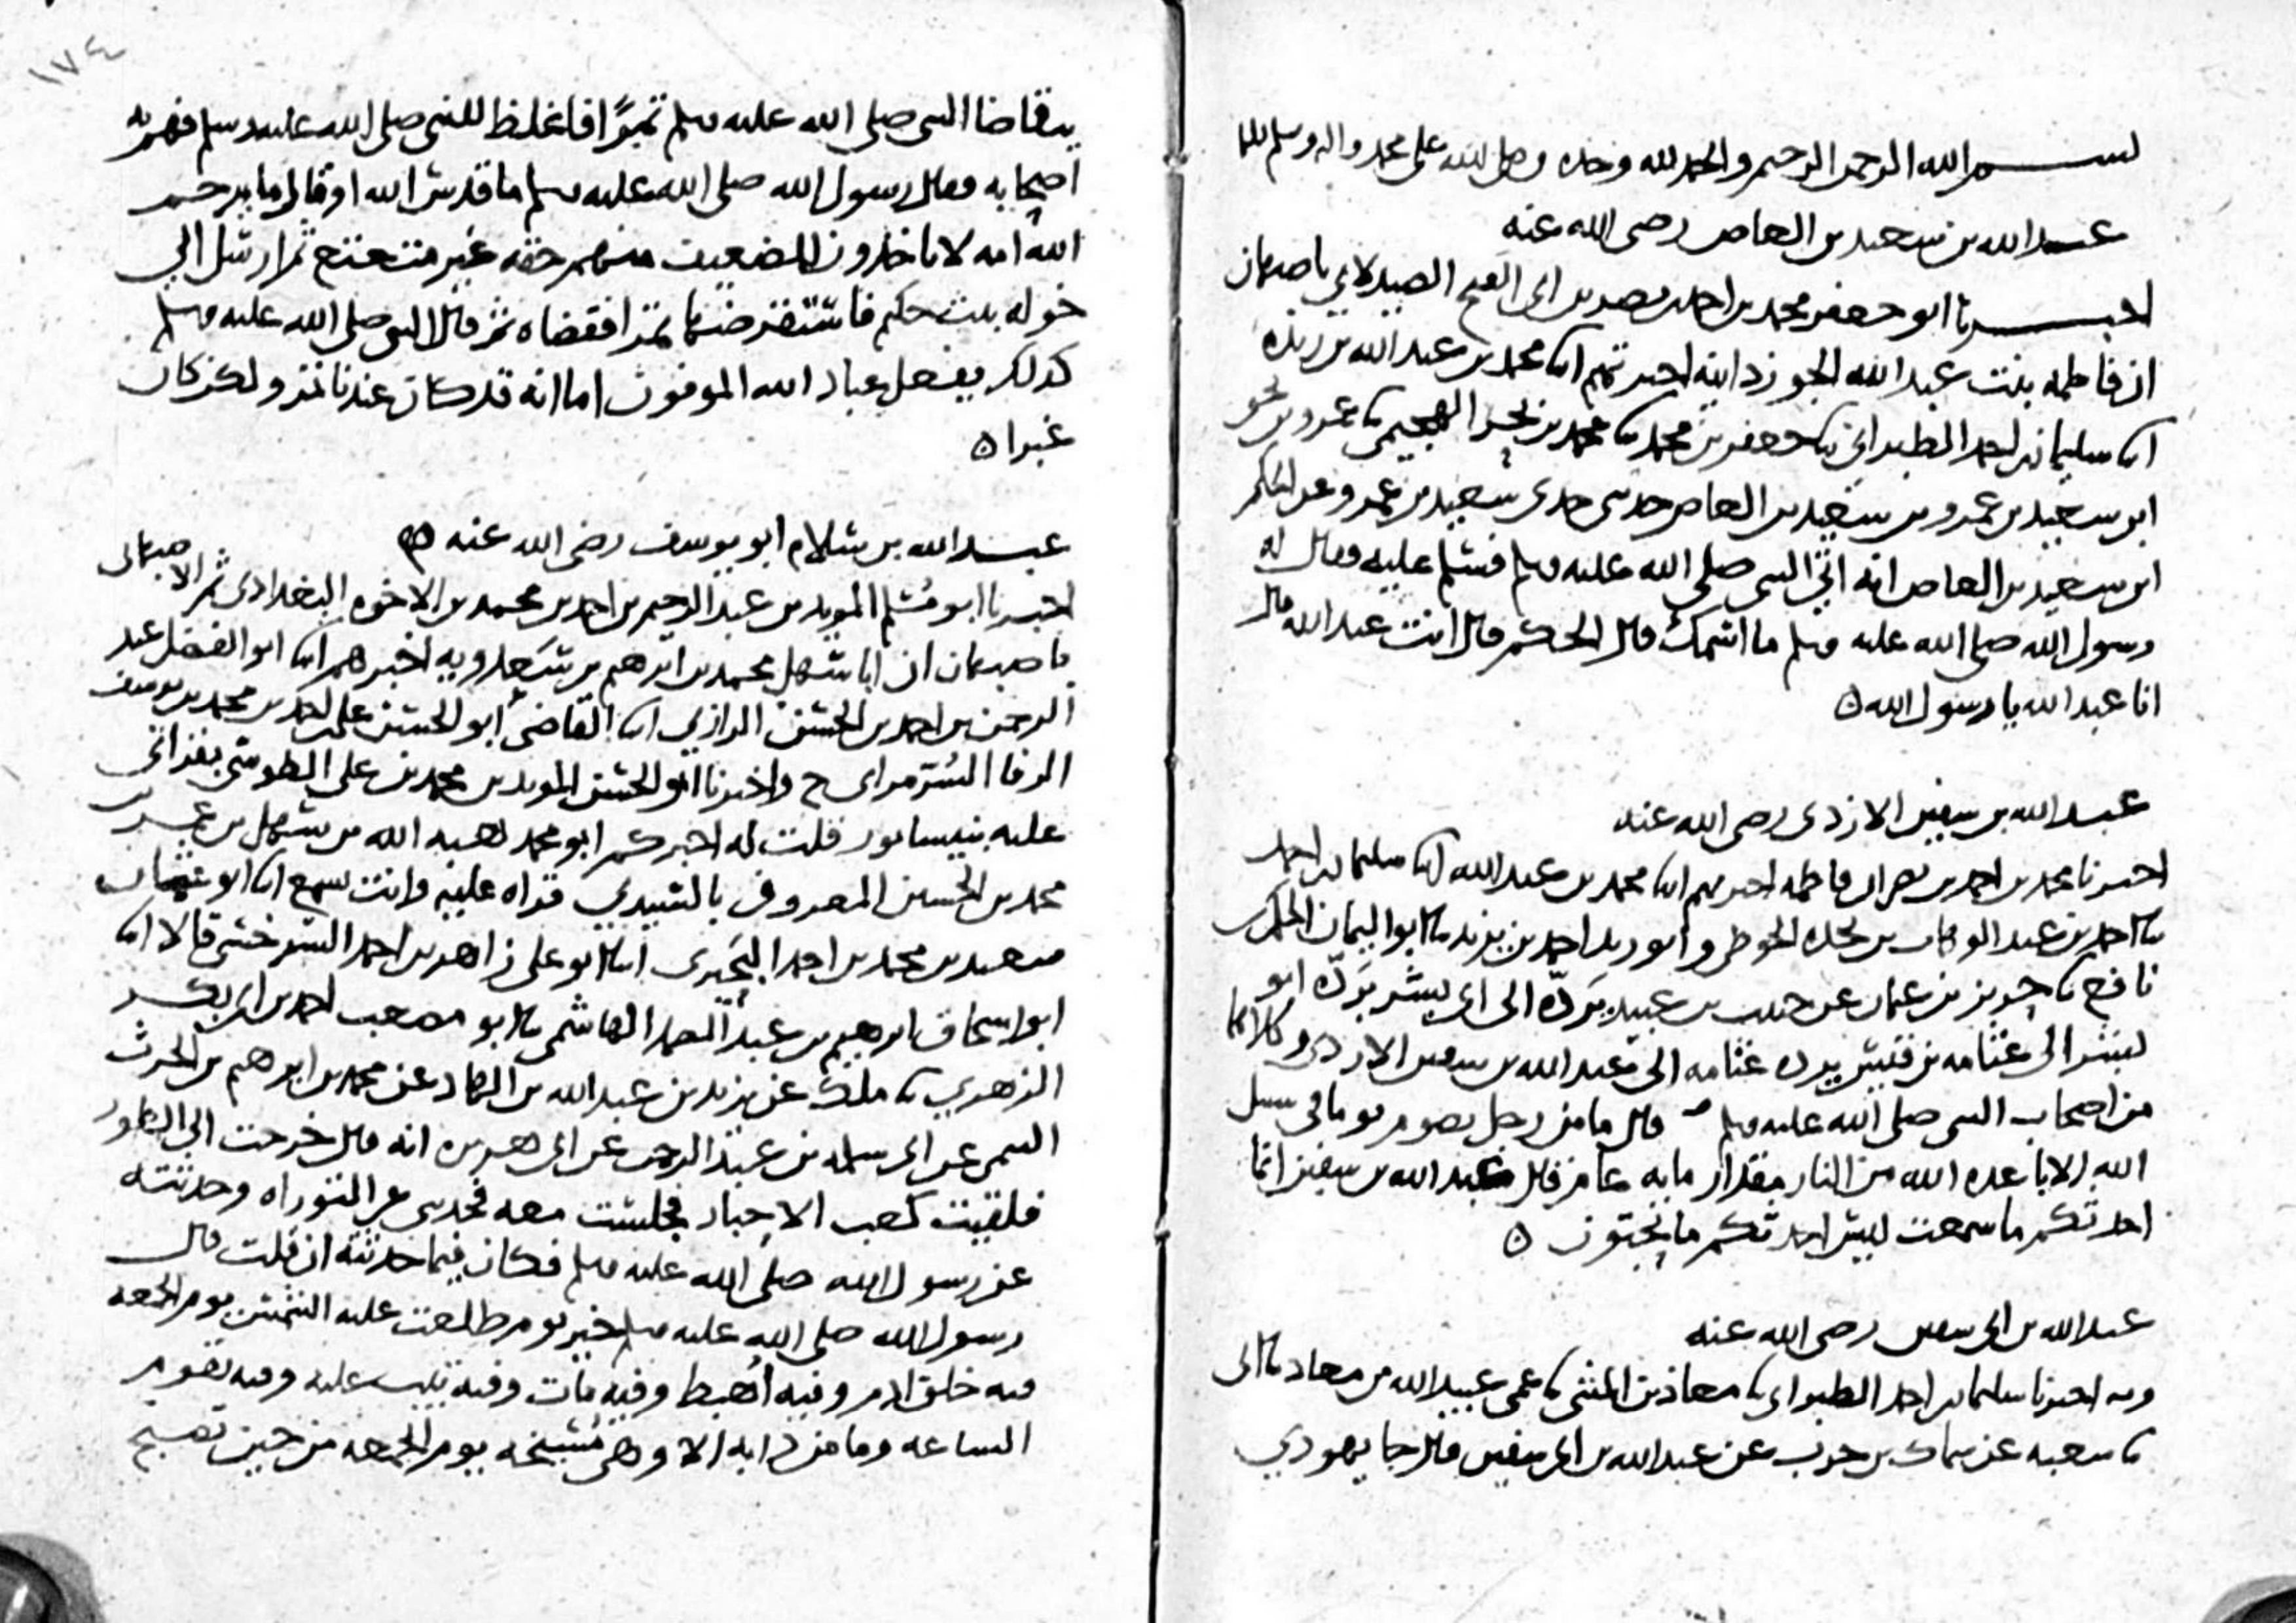 بســـم الله الرحمن الرحيم والحمد لله وحده وصلى الله على محمد واله وسلم
عبد الله بن سعيد بن العاص رضى الله عنه
اخبرنا ابو جعفر محمد بن احمد بن نصر بن ابى الفتح الصيدلانى باصبهان
ان فاطمه بنت عبد الله الجوزدانيه اخبرتهم انا محمد بن عبد الله بن ريذه
انا سليمان بن احمد الطبرانى نا جعفر بن محمد نا محمد بن بحر الهجيمى نا عمرو بن
ابن سعيد بن عمرو بن سعيد بن العاص حدثنى جدى سعيد بن عمرو عن الحكم
ابن سعيد بن العاص انه اتى النبى صلى الله عليه وسلم فسلم عليه فقال له
رسول الله صلى الله عليه وسلم ما اسمك قال الحكم قال انت عبد الله قال
انا عبد الله يا رسول الله ه
عبد الله بن سفين الازدى رضى الله عنه
اخبرنا محمد بن احمد بن نصر ان فاطمه اخبرتهم انا محمد بن عبد الله انا سليمان بن احمد
نا احمد بن عبد الوهاب بن نجده الحوطى وابو زيد احمد بن يزيد نا ابو اليمان الحكم بن
نافع نا حريز بن عثمان عن حبيب بن عبيد يردّه الى ابى بشر يردّه ابو
بشر الى عثامه بن قيس يرده عثامه الى عبد الله بن سفين الازدى وكلاهما
من اصحاب النبى صلى الله عليه وسلم قال ما من رجل يصوم يوما فى سبيل
الله الا باعده الله من النار مقدار مايه عام فقال عبد الله بن سفين انما
احدثكم ما سمعت ليس احدثكم ما تحبون ه
عبد الله بن ابى سفين رضى الله عنه
وبه اخبرنا سليمان بن احمد الطبرانى نا معاذ بن المثنى نا عمى عبيد الله بن معاذ نا ابى
نا شعبه عن سماك بن حرب عن عبد الله بن ابى سفين قال جا يهودي
١٧٤
يتقاضا النبى صلى الله عليه وسلم تمرًا فاغلظ للنبى صلى الله عليه وسلم فهم به
اصحابه فقال رسول الله صلى الله عليه وسلم ما قدس الله او قال ما يرحم
الله امه لا ياخذون للضعيف منهم حقه غير متعتع ثم ارسل الى
خوله بنت حكيم فاستقرضها تمرا فقضاه ثم قال النبى صلى الله عليه وسلم
كذلك يفعل عباد الله الموفون اما انه قد كان عندنا تمر ولكن كان
غبرا ه
عبد الله بن سلام ابو يوسف رضى الله عنه ه
اخبرنا ابو مسلم المويد بن عبد الرحيم بن احمد بن محمد بن الاخوه البغدادى ثم الاصبهانى
باصبهان ان ابا سهل محمد بن ابرهيم بن سعدويه اخبرهم انا ابو الفضل عبد
الرحمن بن احمد بن الحسن الرازى انا القاضى ابو الحسن على بن احمد بن محمد بن يوسف
الرفا السرمراى ح واخبرنا ابو الحسن المويد بن محمد بن على الطوسى بقراتى
عليه بنيسابور قلت له اخبركم ابو محمد هبه الله بن سهل بن عمر بن
محمد بن الحسين المعروف بالسيدي قراه عليه وانت تسمع انا ابو عثمان
سعيد بن محمد بن احمد البحيرى انا ابو على زاهر بن احمد السرخسى قالا انا
ابو اسحاق ابرهيم بن عبد الصمد الهاشمى نا ابو مصعب احمد بن ابى بكر
الزهري نا ملك عن يزيد بن عبد الله بن الهاد عن محمد بن ابرهيم بن الحرث
التيمى عن ابى سلمه بن عبد الرحمن عن ابى هريره انه قال خرجت الى الطور
فلقيت كعب الاحبار فجلست معه فحدثنى عن التوراه وحدثته
عن رسول الله صلى الله عليه وسلم فكان فيما حدثته ان قلت قال
رسول الله صلى الله عليه وسلم خير يوم طلعت عليه الشمس يوم الجمعه
فيه خلق ادم وفيه أهبط وفيه مات وفيه تيب عليه وفيه تقوم
الساعه وما من دابه الا وهى مُسيخه يوم الجمعه من حين تصبح